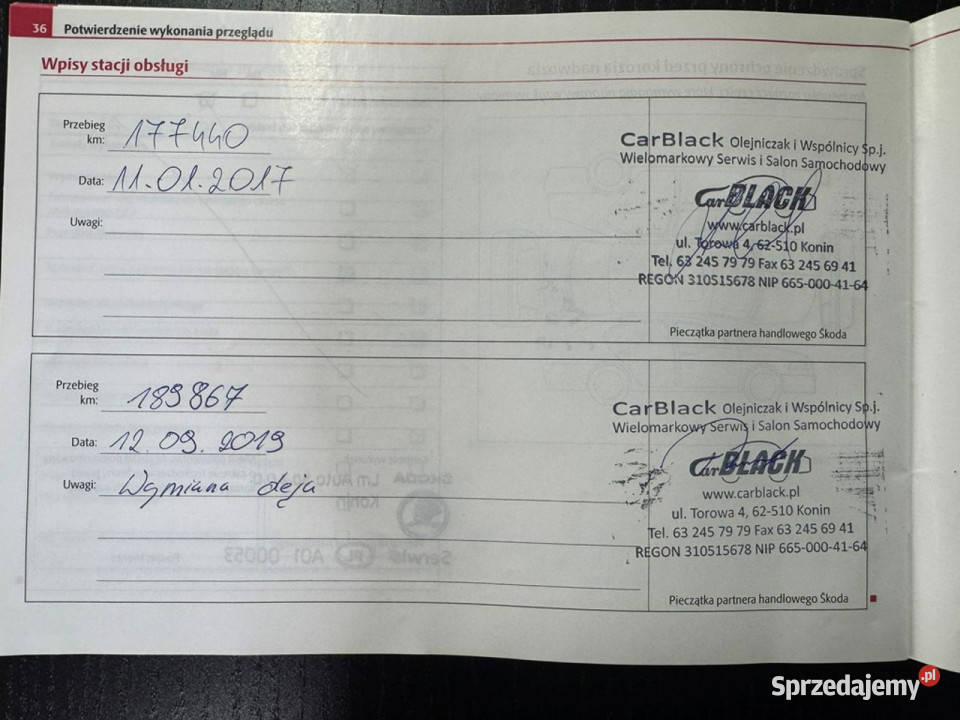 36 Potwierdzenie wykonania przeglądu
Wpisy stacji obsługi
Przebieg
km: 177440
Data: 11.01.2017
Uwagi:
CarBlack Olejniczak i Wspólnicy Sp.j.
Wielomarkowy Serwis i Salon Samochodowy
Car BLACK
www.carblack.pl
ul. Torowa 4, 62-510 Konin
Tel. 63 245 79 79 Fax 63 245 69 41
REGON 310515678 NIP 665-000-41-64
Pieczątka partnera handlowego Škoda
Przebieg
km: 189867
Data: 12.09.2019
Uwagi: Wymiana oleju
CarBlack Olejniczak i Wspólnicy Sp.j.
Wielomarkowy Serwis i Salon Samochodowy
Car BLACK
www.carblack.pl
ul. Torowa 4, 62-510 Konin
Tel. 63 245 79 79 Fax 63 245 69 41
REGON 310515678 NIP 665-000-41-64
Pieczątka partnera handlowego Škoda
Sprzedajemy.pl